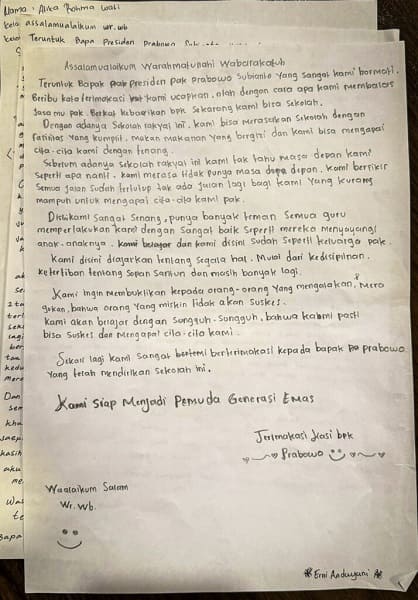 Nama : Alika Rohma wati
assalamualaikum wr.wb
Teruntuk Bapa Presiden Prabowo
Assalamualaikum Warahmatullahi Wabarakatuh
Teruntuk Bapak Presiden pak Prabowo Subianto Yang sangat kami hormati.
Beribu kata terimakasi kami ucapkan, olah dengan cara apa kami membalas
Jasa mu pak. Berkat kebaikan bpk sekarang kami bisa sekolah.
Dengan adanya sekolah rakyat ini, kami bisa merasakan sekolah dengan
Fasilitas Yang kumplit, makan makanan yang bergizi dan kami bisa mengapai
cita-cita kami dengan tenang.
Sebelum adanya sekolah rakyat ini kami tak tahu masa depan kami
seperti apa nanti. kami merasa tidak punya masa depan. kami berfikir
semua jalan sudah tertutup tak ada jalan lagi bagi kami Yang kurang
mampuh untuk mengapai cita-cita kami pak.
Disini kami sangat senang, punya banyak teman semua guru
memperlakukan kami dengan sangat baik seperti mereka menyayangi
anak-anaknya. kami belajar dan kami disini sudah seperti keluarga pak.
Kami disini diajarkan tentang segala hal. Mulai dari kedisiplinan,
ketertiban tentang sopan santun dan masih banyak lagi.
Kami ingin membuktikan kepada orang-orang yang mengatakan,
bahwa orang yang miskin tidak akan suskes.
kami akan belajar dengan sungguh-sungguh, bahwa kami pasti
bisa suskes dan mengapai cita-cita kami.
Sekali lagi kami sangat berterimakasi kepada bapak prabowo
Yang telah mendirikan sekolah ini.
Kami Siap Menjadi Pemuda Generasi Emas
Terimakasi kasi bpk
Prabowo
Waalaikum Salam
Wr. Wb.
Erni Andayani